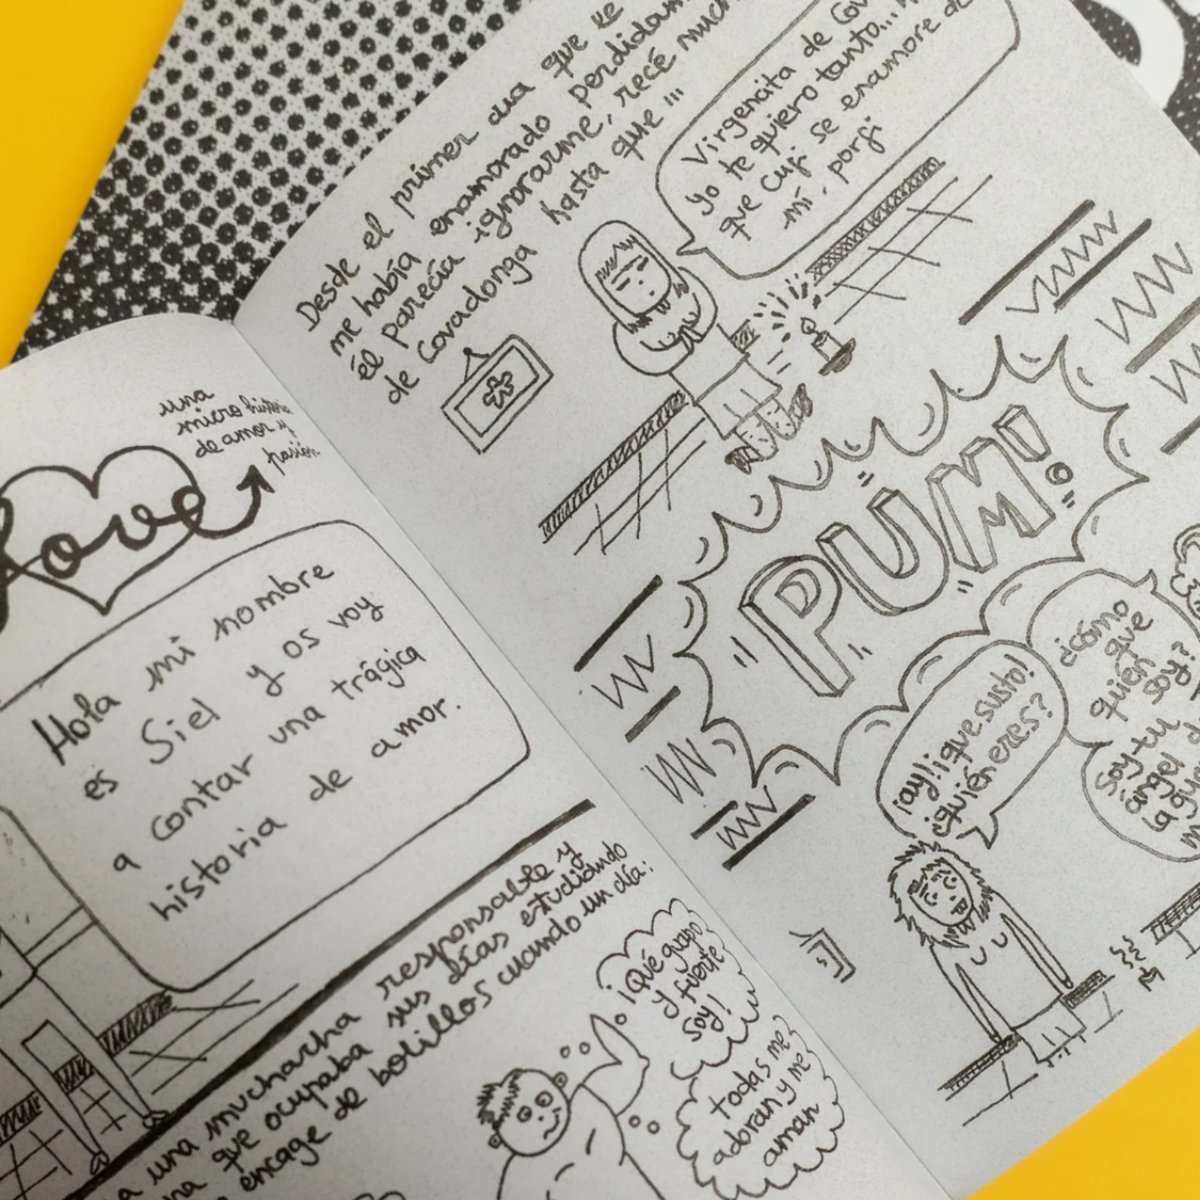 Love
una
micro historia
de amor y
pasión
Hola mi nombre
es Siel y os voy
a contar una trágica
historia de amor.
una muchacha responsable y
que ocupaba sus días estudiando
encage de bolillos cuando un día:
¡Qué guapo
y fuerte
soy!
todas me
adoran y me
aman
Desde el primer dia que le
me había enamorado
él parecía ignorarme, recé
de Covadonga hasta que...
Virgencita de
yo te quiero tanto...
que Cuji se enamore de
mí, porfi
PUM!
¡ay! ¡que susto!
¿quién eres?
¿cómo
que
quién
soy?
Soy tu
ángel
la